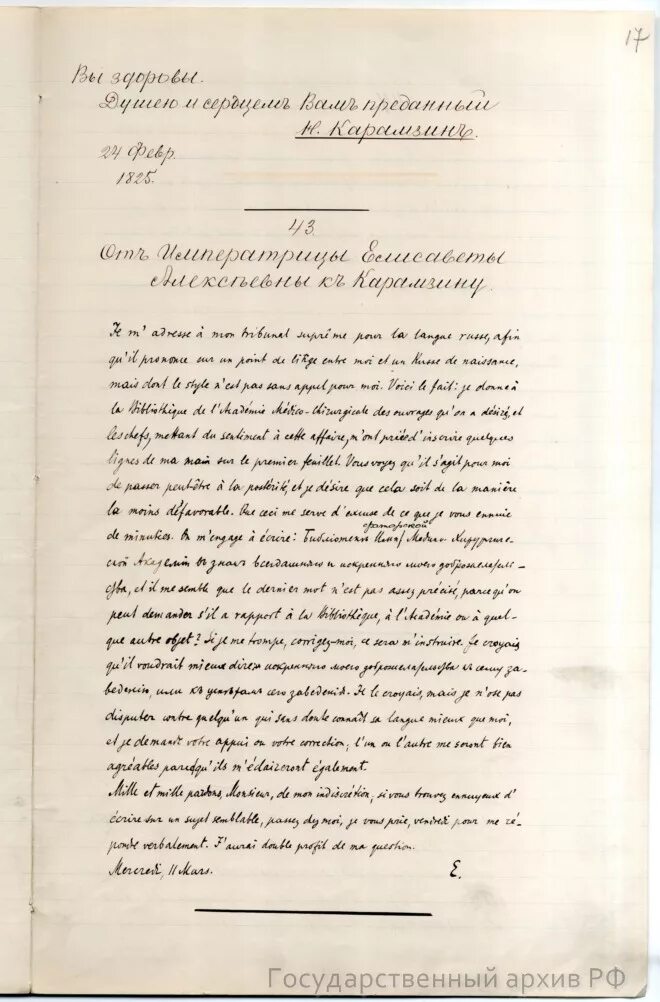 17
Вы здоровы.
Душею и серъцемъ Вамъ преданный
Н. Карамзинъ.
24 Февр.
1825.
43.
Отъ Императрицы Елисаветы
Алексѣевны къ Карамзину.
Je m'adresse à mon tribunal suprême pour la langue russe, afin
qu'il prononce sur un point de litige entre moi et un Russe de naissance,
mais dont le style n'est pas sans appel pour moi. Voici le fait: je donne à
la Bibliothèque de l'Académie Médico-Chirurgicale des ouvrages qu'on a désiré, et
les chefs, mettant du sentiment à cette affaire, m'ont priée d'inscrire quelques
lignes de ma main sur le premier feuillet. Vous voyez qu'il s'agit pour moi
de passer peutêtre à la postérité, et je désire que cela soit de la manière
la moins défavorable. Que ceci me serve d'excuse de ce que je vous ennuie
de minuties. On m'engage à écrire: Библіотекѣ Императорской Медико-Хирургиче-
ской Академіи въ знакъ всегдашняго и искренняго моего доброжелатель-
ства, et il me semble que le dernier mot n'est pas assez précisé, parce qu'on
peut demander s'il a rapport à la Bibliothèque, à l'Académie ou à quel-
que autre objet? Si je me trompe, corrigez-moi, ce sera m'instruire. Je croyais
qu'il voudrait mieux dire искренняго моего доброжелательства къ сему за-
веденію, или къ сего заведенія. Je le croyais, mais je n'ose pas
disputer contre quelqu'un qui sans doute connaît sa langue mieux que moi,
et je demande votre appui ou votre correction; l'un ou l'autre me seront bien
agréables parcequ'ils m'éclaireront également.
Mille et mille pardons, Monsieur, de mon indiscrétion; si vous trouvez ennuyeux d'
écrire sur un sujet semblable, passez chez moi, je vous prie, vendredi pour me ré-
pondre verbalement. J'aurai double profit de ma question.
Mercredi, 11 Mars. E.
Государственный архив РФ